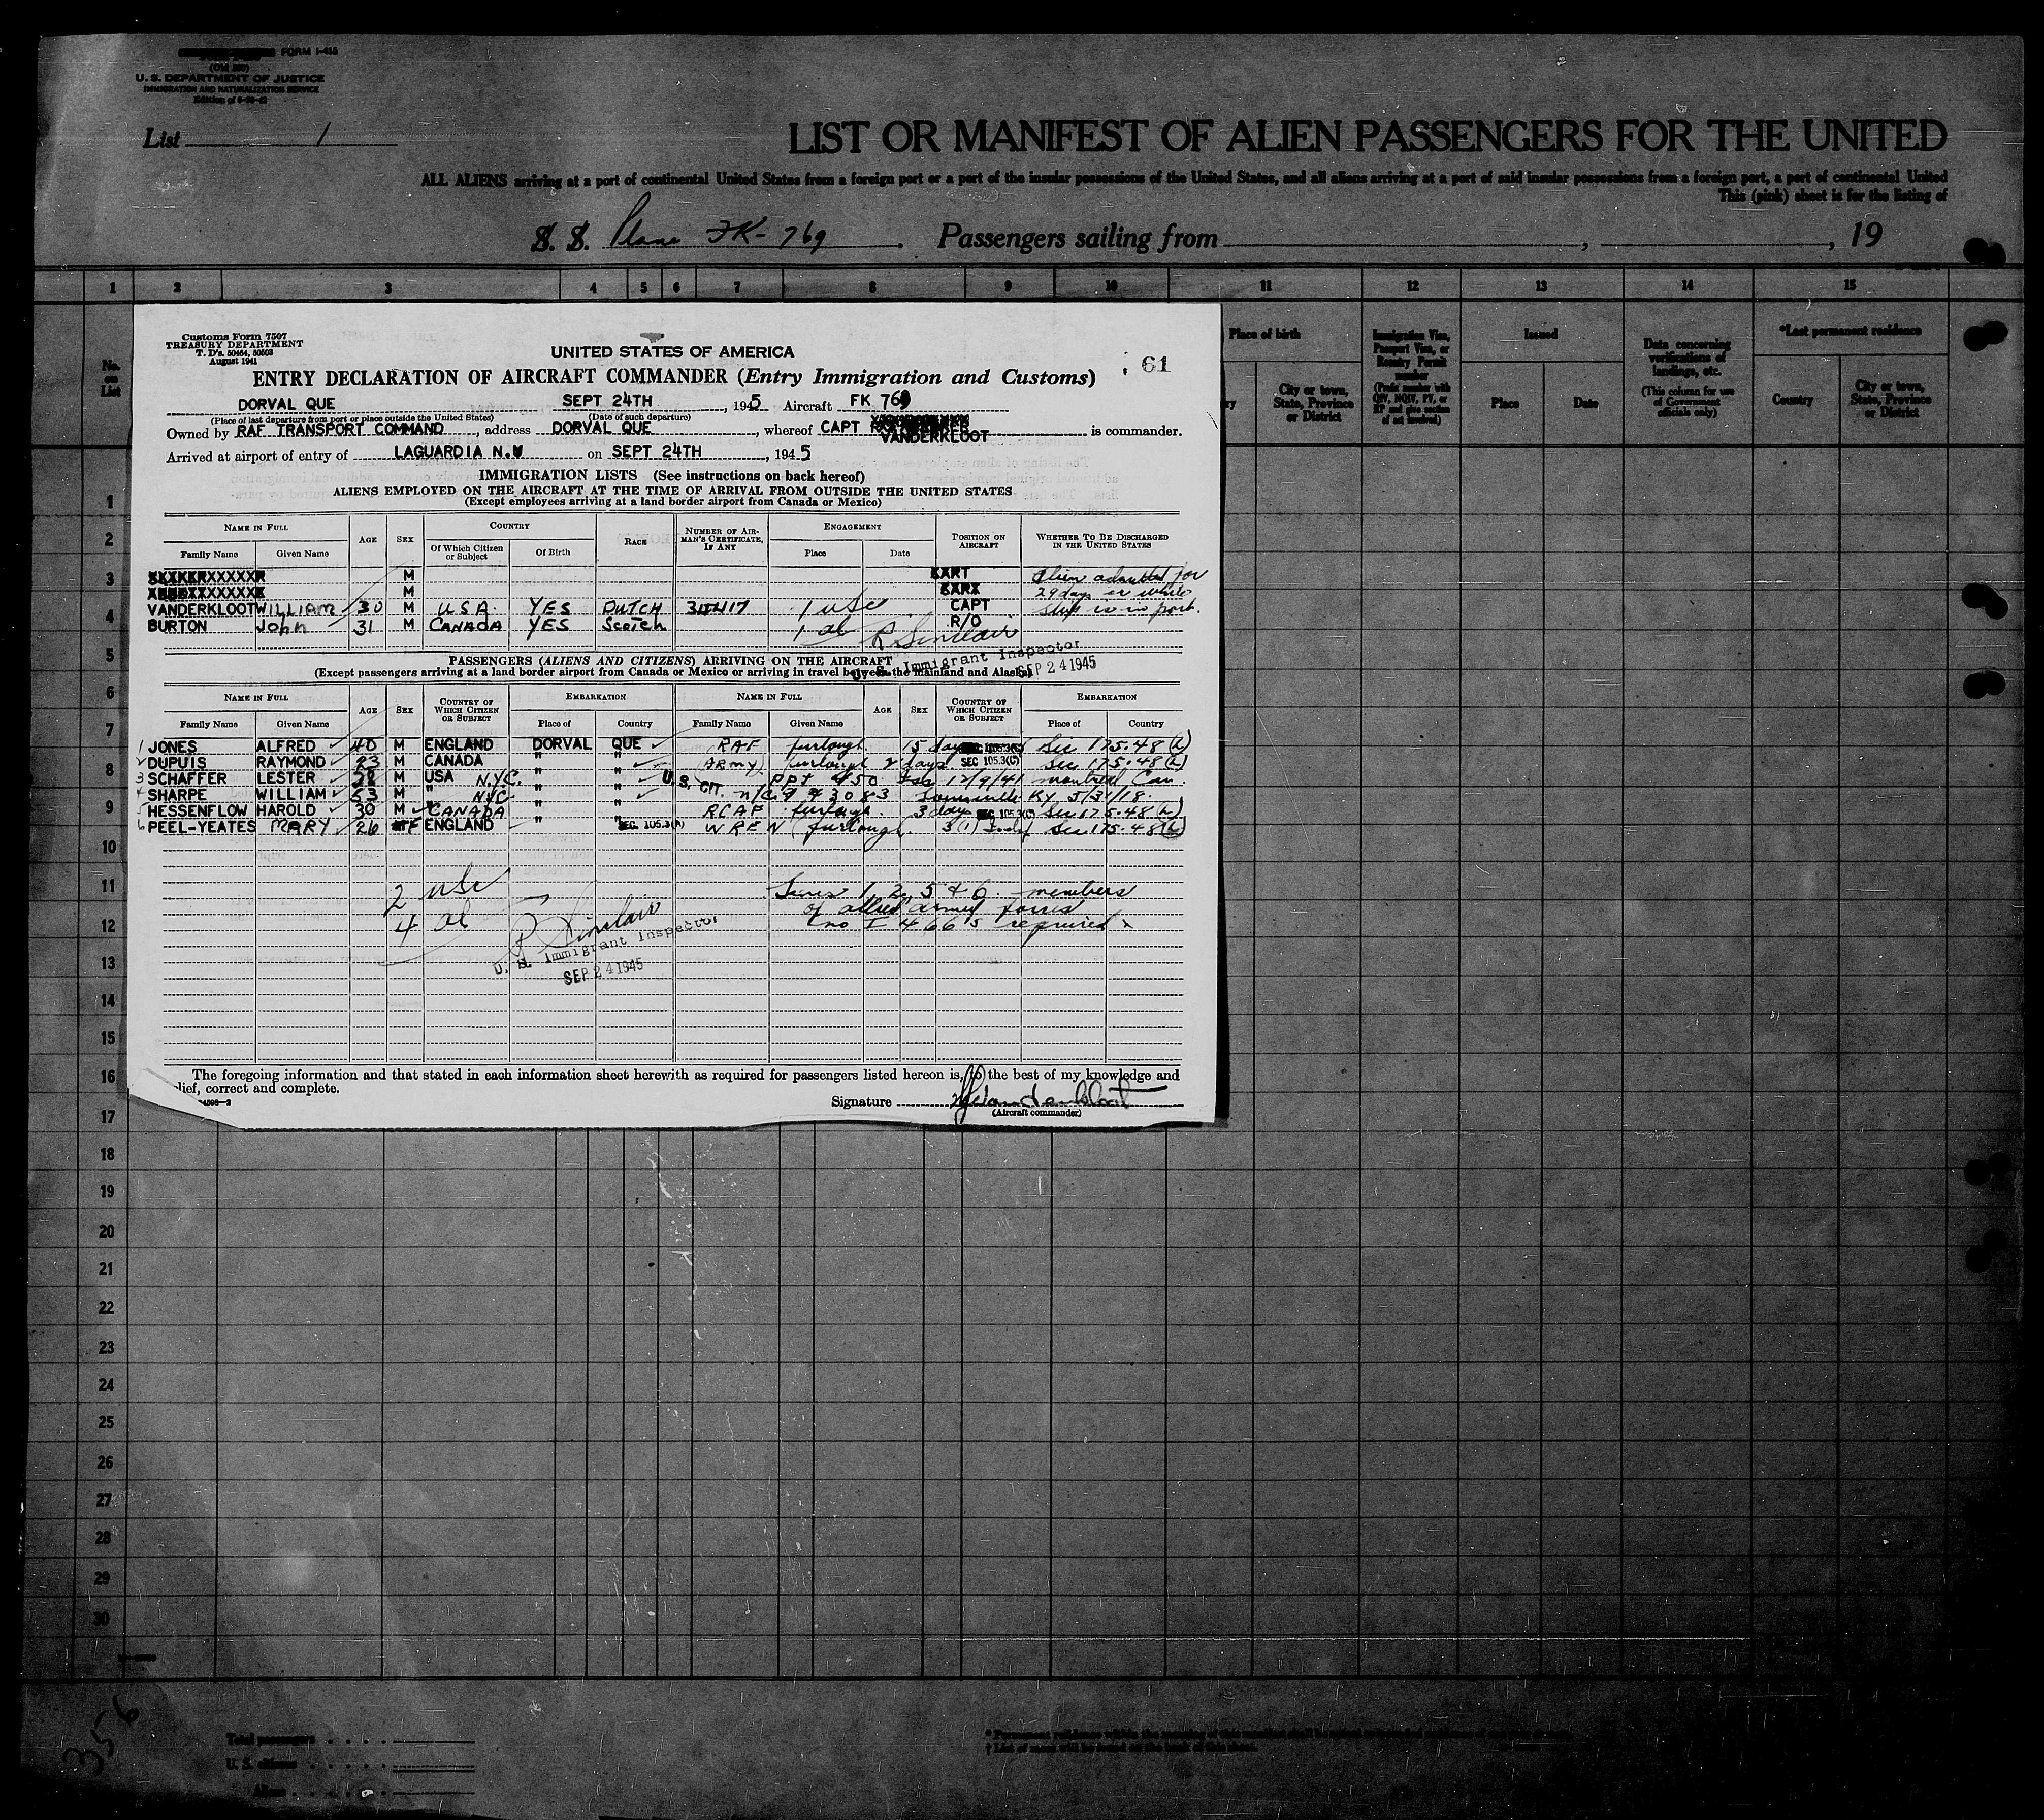 FORM I-415
(Old 500)
U. S. DEPARTMENT OF JUSTICE
IMMIGRATION AND NATURALIZATION SERVICE
List 1
LIST OR MANIFEST OF ALIEN PASSENGERS FOR THE UNITED
ALL ALIENS arriving at a port of continental United States from a foreign port or a port of the insular possessions of the United States, and all aliens arriving at a port of said insular possessions from a foreign port, a port of continental United
This (pink) sheet is for the listing of
S. S. Plane FK-769 . Passengers sailing from , , 19
1 2 3 4 5 6 7 8 9 10 11 12 13 14 15
No. on List
Place of birth
City or town, State, Province or District
Immigration Visa, Passport Visa, or Reentry Permit number
(Prefix number with QIV, NQIV, PV, or RP and give section of act involved)
Issued
Place Date
Data concerning verifications of landings, etc.
(This column for use of Government officials only)
*Last permanent residence
Country
City or town, State, Province or District
Customs Form 7507
TREASURY DEPARTMENT
T. D's. 50464, 50503
August 1941
UNITED STATES OF AMERICA
61
ENTRY DECLARATION OF AIRCRAFT COMMANDER (Entry Immigration and Customs)
DORVAL QUE SEPT 24TH , 1945 Aircraft FK 769
(Place of last departure from port or place outside the United States) (Date of such departure)
Owned by RAF TRANSPORT COMMAND , address DORVAL QUE , whereof CAPT VANDERKLOOT is commander.
Arrived at airport of entry of LAGUARDIA N.Y on SEPT 24TH , 1945
IMMIGRATION LISTS (See instructions on back hereof)
ALIENS EMPLOYED ON THE AIRCRAFT AT THE TIME OF ARRIVAL FROM OUTSIDE THE UNITED STATES
(Except employees arriving at a land border airport from Canada or Mexico)
NAME IN FULL AGE SEX COUNTRY RACE NUMBER OF AIRMAN'S CERTIFICATE, IF ANY ENGAGEMENT POSITION ON AIRCRAFT WHETHER TO BE DISCHARGED IN THE UNITED STATES
Family Name Given Name Of Which Citizen or Subject Of Birth Place Date
M Alien admitted for
M 29 days or while
VANDERKLOOT WILLIAM 30 M USA YES DUTCH 1 USC CAPT ship is in port.
BURTON John 31 M CANADA YES SCOTCH 1 al R/O
R Sinclair
U. S. Immigrant Inspector
SEP 24 1945
PASSENGERS (ALIENS AND CITIZENS) ARRIVING ON THE AIRCRAFT
(Except passengers arriving at a land border airport from Canada or Mexico or arriving in travel between the mainland and Alaska)
NAME IN FULL AGE SEX COUNTRY OF WHICH CITIZEN OR SUBJECT EMBARKATION NAME IN FULL AGE SEX COUNTRY OF WHICH CITIZEN OR SUBJECT EMBARKATION
Family Name Given Name Place of Country Family Name Given Name Place of Country
1 JONES ALFRED 40 M ENGLAND DORVAL QUE RAF furlough 15 days SEC 105.3(C) Sec 175.48 (b)
2 DUPUIS RAYMOND 23 M CANADA " " (ARMY) furlough 2 days SEC 105.3(C) Sec 175.48 (b)
3 SCHAFFER LESTER 28 M USA N.Y.C. " " U.S. CIT. PPT 450 Iss 12/9/41 Montreal Can.
4 SHARPE WILLIAM 53 M " NYC " " Louisville Ky 5/31/18
5 HESSENFLOW HAROLD 30 M CANADA " " RCAF furlough 3 days SEC 105.3(C) Sec 175.48 (b)
6 PEEL-YEATES MARY 26 F ENGLAND " " SEC. 105.3(A) WREN furlough Sec 175.48 (b)
2 USC
4 al
R Sinclair
U. S. Immigrant Inspector
SEP 24 1945
Lines 1, 2, 5 & 6 members
of allied armed forces
no I 466's required
The foregoing information and that stated in each information sheet herewith as required for passengers listed hereon is, to the best of my knowledge and
lief, correct and complete.
Signature
(Aircraft commander)
1
2
3
4
5
6
7
8
9
10
11
12
13
14
15
16
17
18
19
20
21
22
23
24
25
26
27
28
29
30
356
Total passengers
U. S. citizens
Aliens
† List of races will be found on the back of this sheet.